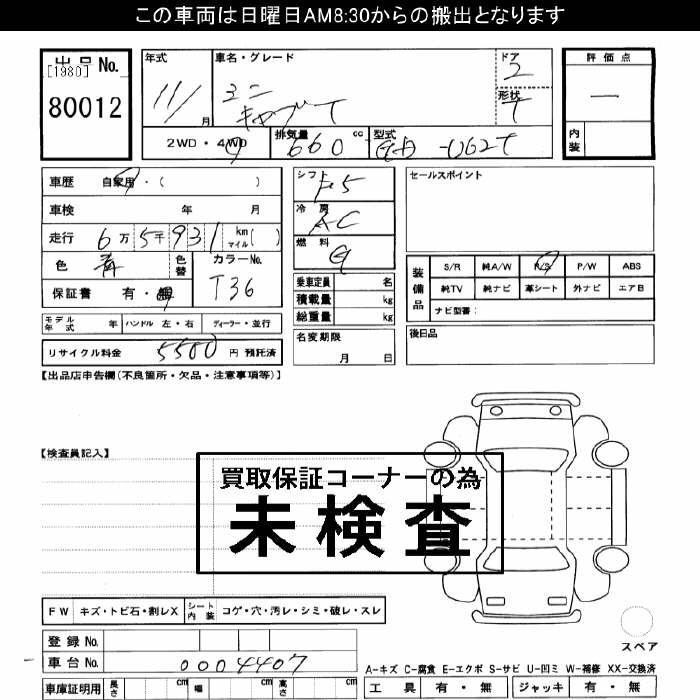 この車両は日曜日AM8:30からの搬出となります
出品 No.
[1980]
80012
年式 11/ 月
車名・グレード ミニキャブ T
ドア 2
形状 T
評価点 —
内装
2WD・4WD
排気量 660 cc
型式 -U62T
車歴 自家用・( )
車検 年 月
走行 6万5千931 km マイル( )
色 青 色替
カラーNo. T36
保証書 有・無
シフト F5
冷房 AC
燃料 G
乗車定員 名
積載量 kg
総重量 kg
セールスポイント
装備品
S/R 純A/W P/S P/W ABS
純TV 純ナビ 革シート 外ナビ エアB
ナビ型番:
モデル年式 年 ハンドル 左・右 ディーラー・並行
名変期限 月 日
後日品
リサイクル料金 5500 円 預託済
【出品店申告欄(不良箇所・欠品・注意事項等)】
【検査員記入】
買取保証コーナーの為
未検査
FW キズ・トビ石・割レX シート内装 コゲ・穴・汚レ・シミ・破レ・スレ
登録 No.
車台 No. 0004407
スペア
A-キズ C-腐食 E-エクボ S-サビ U-凹ミ W-補修 XX-交換済
車庫証明用 長さ cm 幅 cm 高さ cm
工具 有・無 ジャッキ 有・無